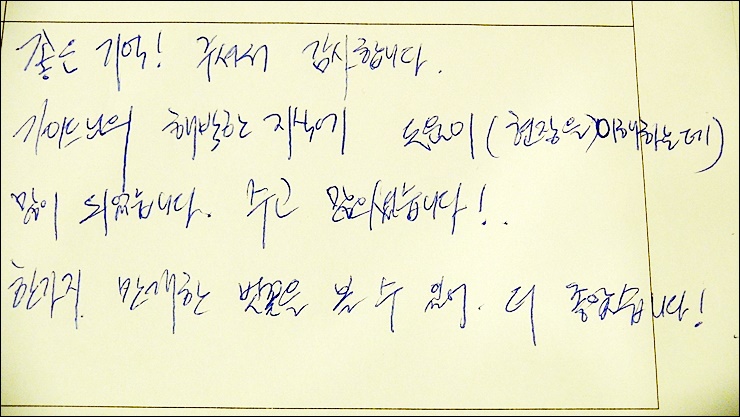 좋은 기억! 주셔서 감사합니다.
가이드님의 해박한 지식이 도움이 (현장을 이해하는데)
많이 되었습니다. 수고 많으셨습니다!.
한가지. 만개한 벚꽃을 볼 수 있어. 더 좋았습니다!